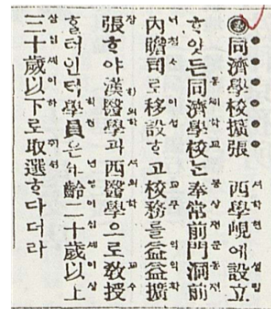 同濟學校擴張 西學峴에設立
ᄒᆞ얏든同濟學校ᄂᆞᆫ奉常前門洞前
內贍司로移設ᄒᆞ고校務를益益擴
張ᄒᆞ야漢醫學과西醫學으로敎授
ᄒᆞᆯ터인ᄃᆡ學員은年齡二十歲以上
三十歲以下로取選ᄒᆞᆫ다더라